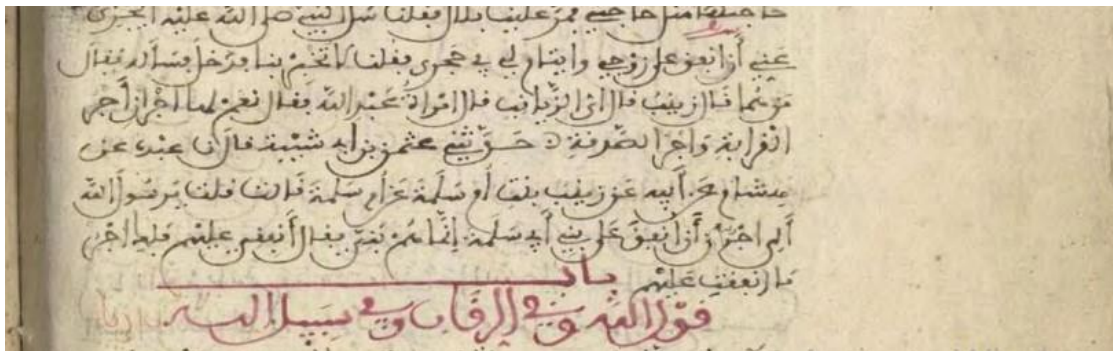 حاجتها مثل حاجتي فمر علينا بلال فقلنا سل النبي صلى الله عليه أيجزئ
عني أن أنفق على زوجي وأيتام لي في حجري وقلنا لا تخبر بنا فدخل فسأله فقال
من هما قال زينب قال أي الزيانب قال امرأة عبد الله فقال نعم لها أجران أجر
القرابة وأجر الصدقة حدثني عثمن بن أبي شيبة قال نا عبدة عن
هشام عن أبيه عن زينب بنت أم سلمة عن أم سلمة قالت قلت يرسول الله
ألي أجر أن أنفق على بني أبي سلمة إنما هم بني فقال أنفقي عليهم فلك أجر
ما أنفقت عليهم باب
قول الله وفي الرقاب وفي سبيل الله